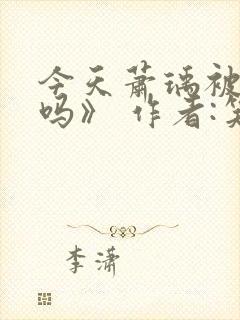 今天萧瑀被
吗》 作者:笑
李潇